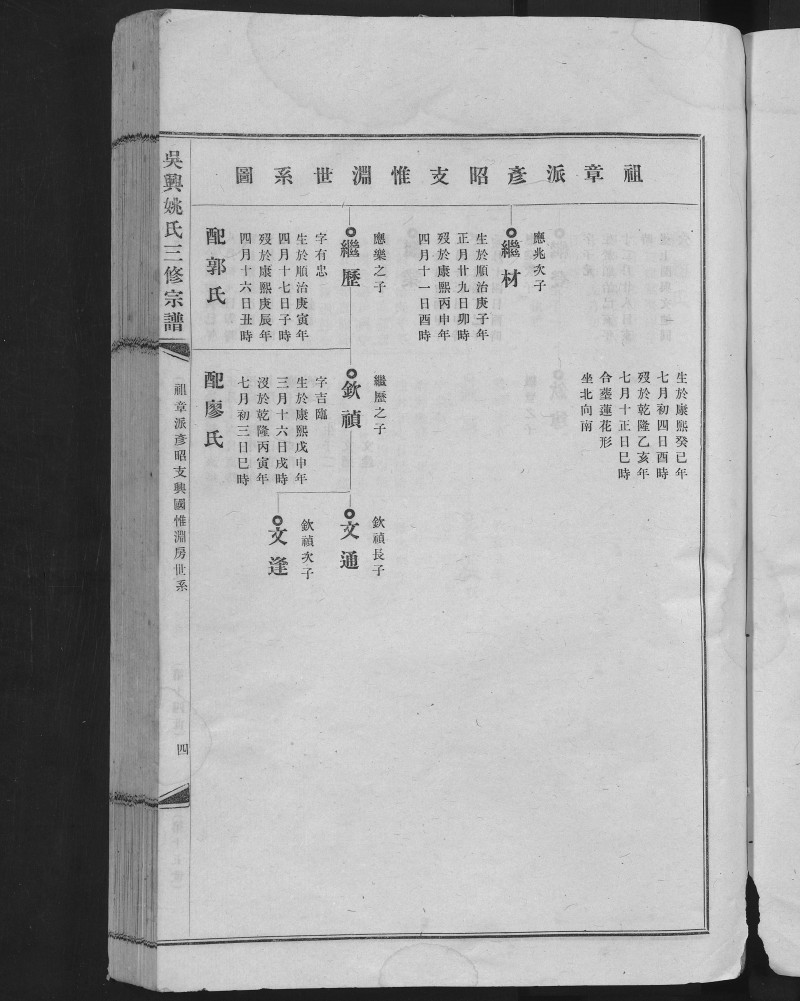 祖章派彥昭支惟淵世系圖
生於康熙癸已年
七月初四日酉時
歿於乾隆乙亥年
七月十正日巳時
合塟蓮花形
坐北向南
應兆次子
繼材
生於順治庚子年
正月廿九日卯時
歿於康熙丙申年
四月十一日酉時
應樂之子
繼歷
字有忠
生於順治庚寅年
四月十七日子時
歿於康熙庚辰年
四月十六日丑時
配郭氏
繼歷之子
欽禎
字吉臨
生於康熙戊申年
三月十六日戌時
沒於乾隆丙寅年
七月初三日巳時
配廖氏
欽禎長子
文通
欽禎次子
文逢
吳興姚氏三修宗譜
祖章派彥昭支興國惟淵房世系
四